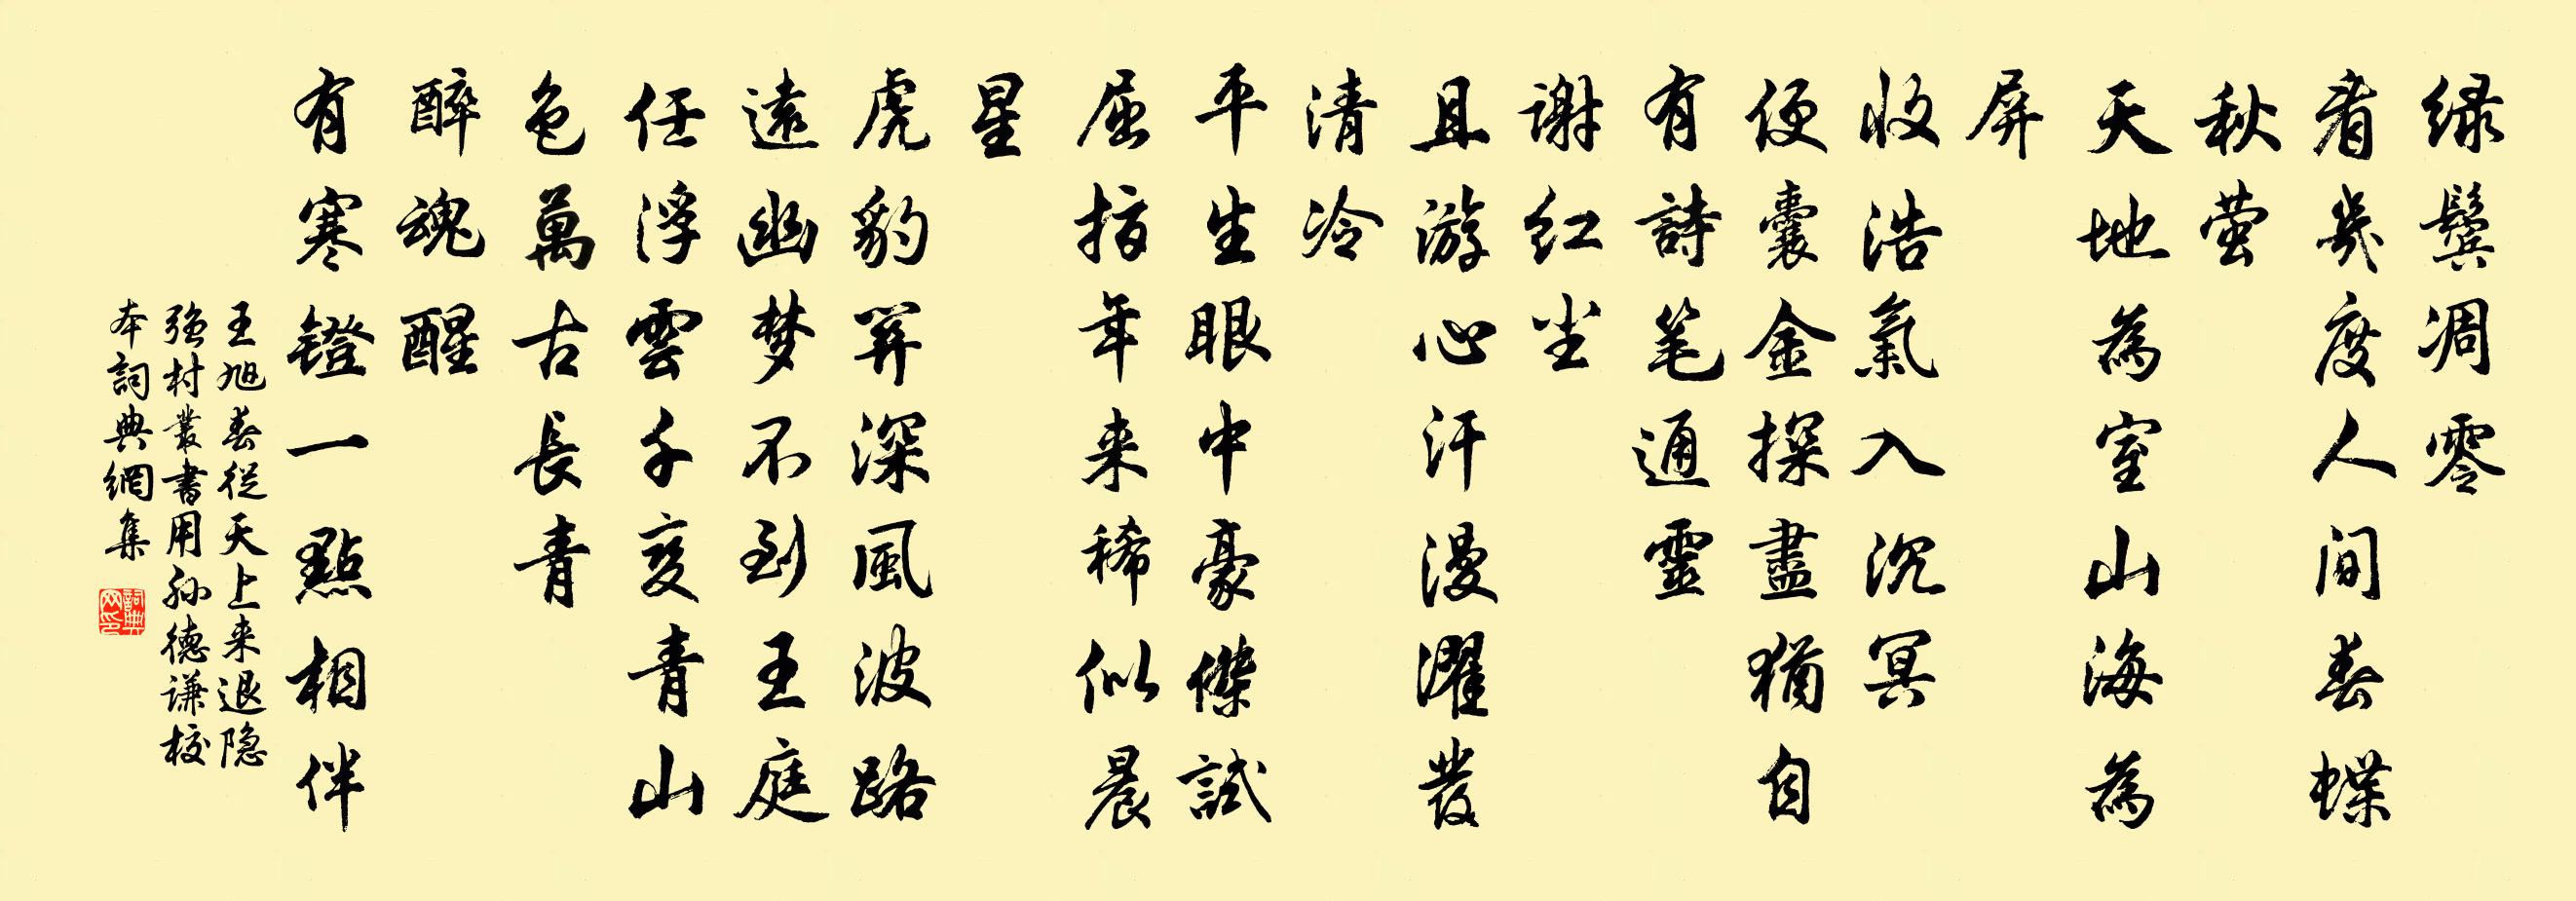 绿鬓凋零
看几度人间春蝶
秋萤
天地為室山海為
屏
收浩氣入沉冥
便囊金探盡猶自
有詩笔通靈
谢红尘
且游心汗漫濯髮
清冷
平生眼中豪傑試
屈指年来稀似晨
星
虎豹關深風波路
遠幽梦不到王庭
任浮雲千变青山
色萬古長青
醉魂醒
有寒鐙一點相伴
王旭春從天上来退隐
強村叢書用孙德谦校
本詞典網集
詞典网印